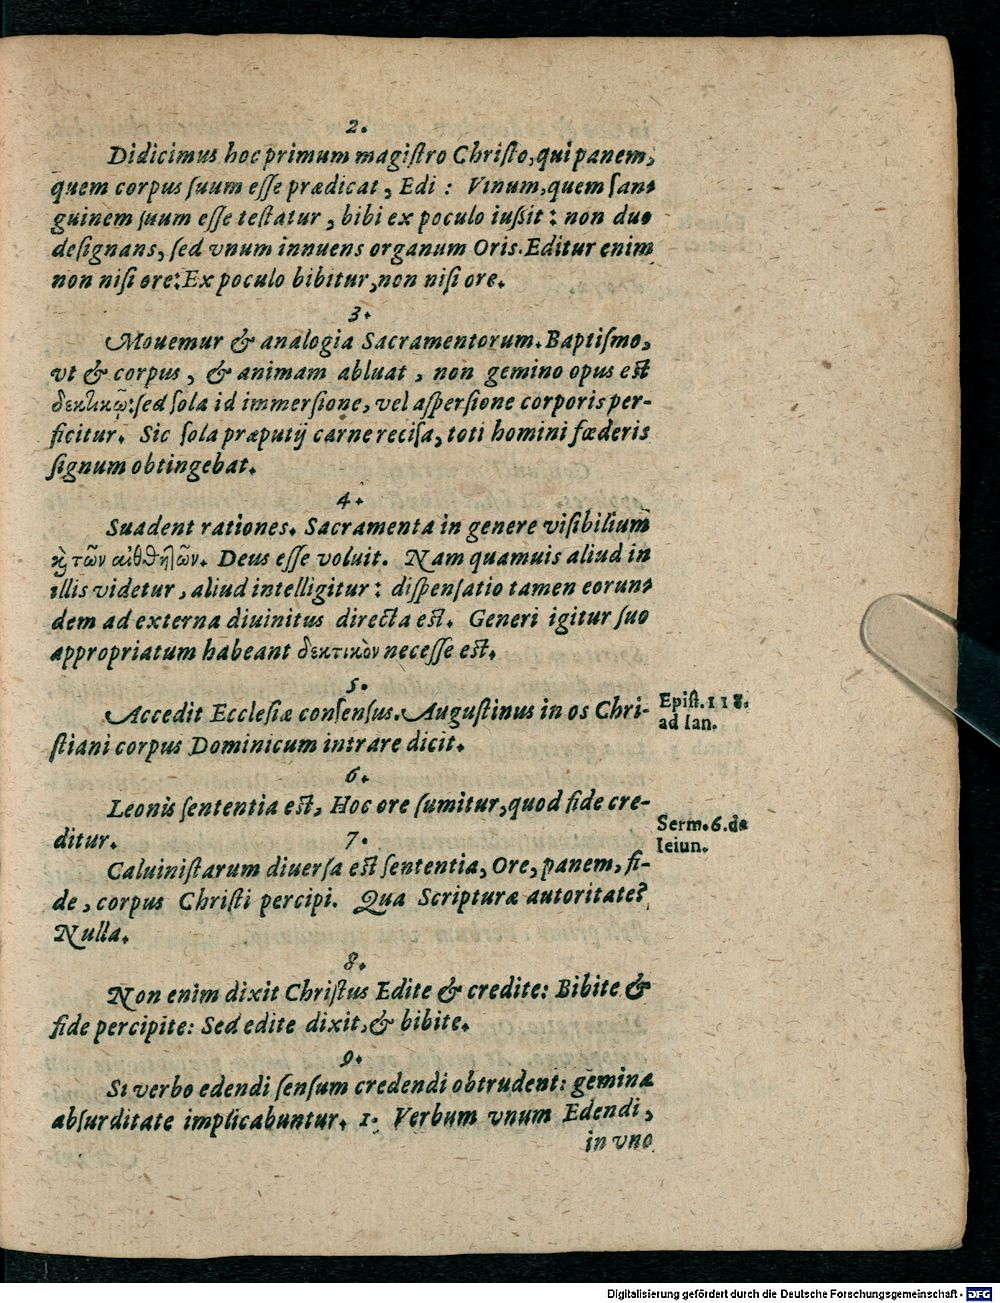 2.
Didicimus hoc primum magiſtro Chriſto, qui panem,
quem corpus ſuum eſſe prædicat, Edi: Vinum, quem ſan-
guinem ſuum eſſe teſtatur, bibi ex poculo iuſsit: non duo
deſignans, ſed vnum innuens organum Oris. Editur enim
non niſi ore: Ex poculo bibitur, non niſi ore.
3.
Mouemur & analogia Sacramentorum. Baptiſmo,
vt & corpus, & animam abluat, non gemino opus eſt
δεκτικῷ: ſed ſola id immerſione, vel aſperſione corporis per-
ficitur. Sic ſola præputij carne reciſa, toti homini fœderis
ſignum obtingebat.
4.
Suadent rationes. Sacramenta in genere viſibilium
ϗ̀ τῶν αἰσθητῶν. Deus eſſe voluit. Nam quamuis aliud in
illis videtur, aliud intelligitur: diſpenſatio tamen eorun-
dem ad externa diuinitus directa eſt. Generi igitur ſuo
appropriatum habeant δεκτικὸν neceſſe eſt.
5.
Accedit Eccleſiæ conſenſus. Auguſtinus in os Chri-
ſtiani corpus Dominicum intrare dicit.
Epiſt. 118.
ad Ian.
6.
Leonis ſententia eſt, Hoc ore ſumitur, quod fide cre-
ditur.
Serm. 6. de
Ieiun.
7.
Caluiniſtarum diuerſa eſt ſententia, Ore, panem, fi-
de, corpus Chriſti percipi. Qua Scripturæ autoritate?
Nulla.
8.
Non enim dixit Chriſtus Edite & credite: Bibite &
fide percipite: Sed edite dixit, & bibite.
9.
Si verbo edendi ſenſum credendi obtrudent: geminæ
abſurditate implicabuntur. 1. Verbum vnum Edendi,
in vno
Digitalisierung gefördert durch die Deutsche Forschungsgemeinschaft - DFG